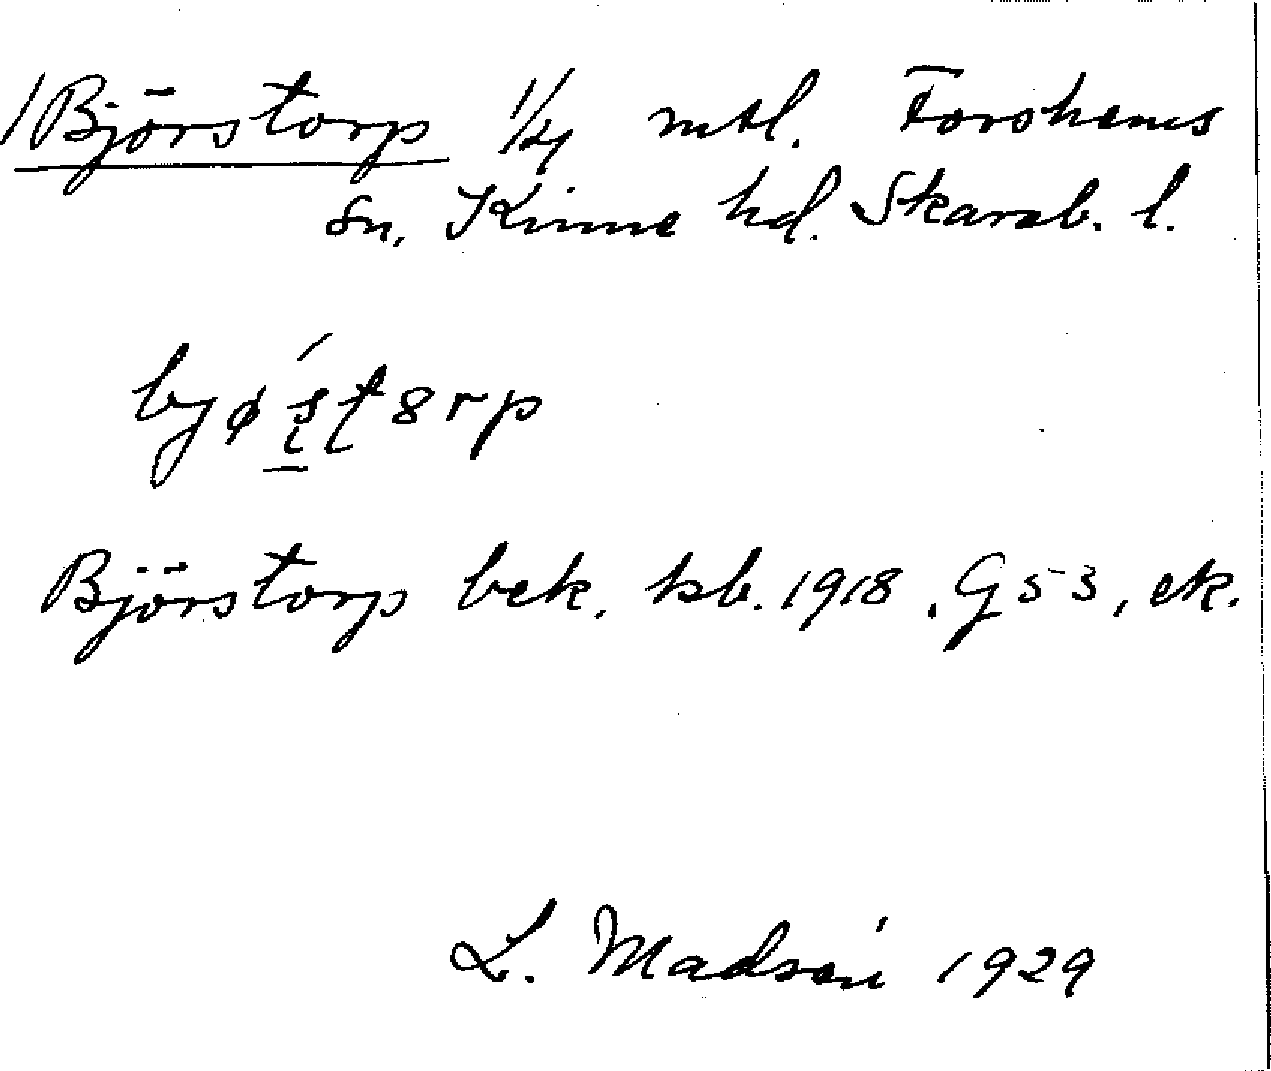 /Björstorp 1/4 mtl. Forshems
Sn. Kinne hd. Skarab. l.
bjøʂ́ʈ8rp
Björstorp bek. kb. 1918. G 53, ek.
L. Madsén 1929